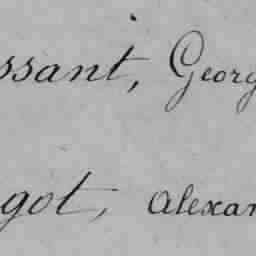 ssant, Georg
got, alexan